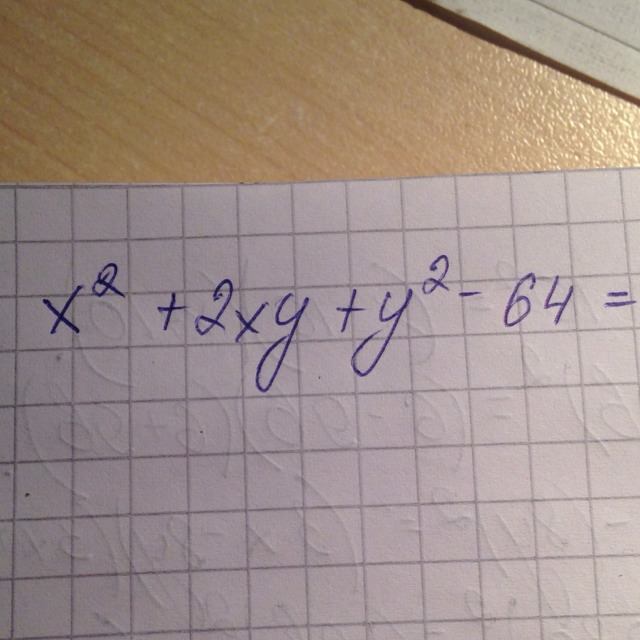 x² + 2xy + y² - 64 =